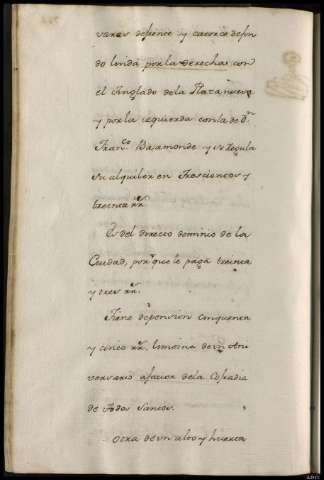 varas defrente y catorce defon
do linda por la derecha con
el Tinglado de la Plaza nueva
y por la izquierda con la de Dn.
Franco. Baamonde y se regula
su alquiler en Trescientos y
treinta rs.
Es del directo dominio de la
Ciudad, porque le paga treinta
y tres rs.
Tiene depension cinquenta
y cinco rs. limosna de un Ani
versario afavor de la Cofradia
de Todos Santos.
Otra de un alto y huerta